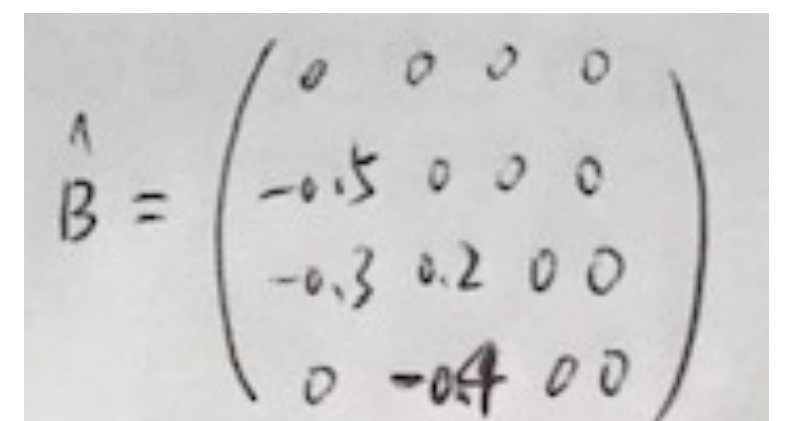 0 0 0 0
-0.5 0 0 0
B̂ =
-0.3 0.2 0 0
0 -0.4 0 0